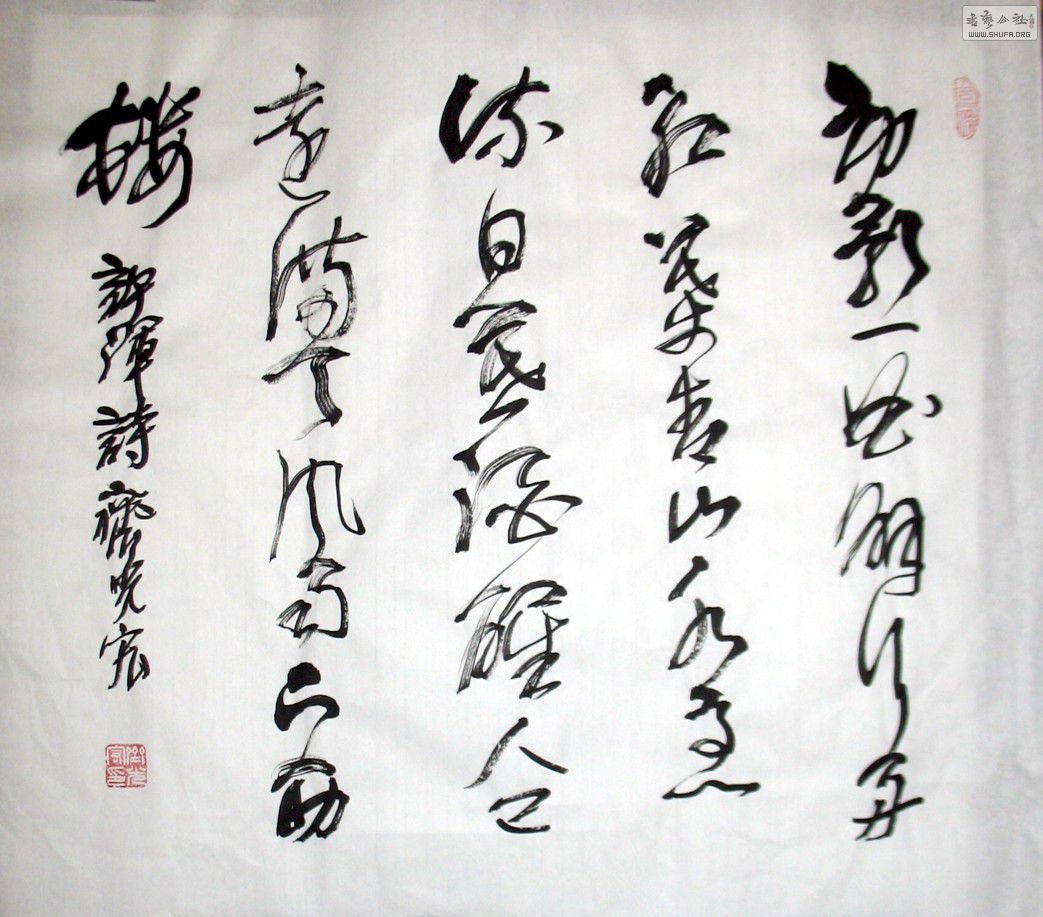 勞歌一曲解行舟
紅葉青山水急
流日暮酒醒人已
遠滿天風雨下西
樓 許渾詩
書藝公社
WWW.SHUFA.ORG